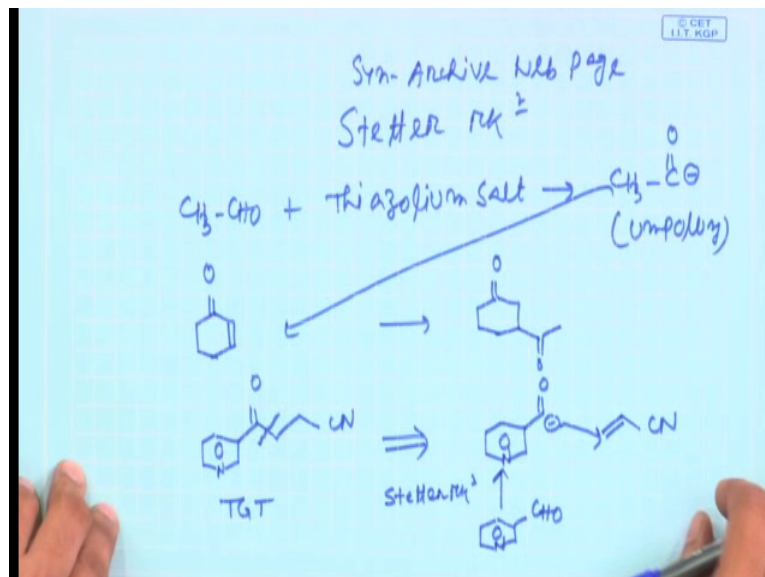 © CET
I.I.T. KGP
Syn-Archive Web Page
Stetter rxn
CH3-CHO + Thiazolium Salt → CH3-C⊖
O
(umpolung)
O
O
→
O
O
O
CN
⇒
⊖
CN
N
N
TGT
Stetter rxn
CHO
N